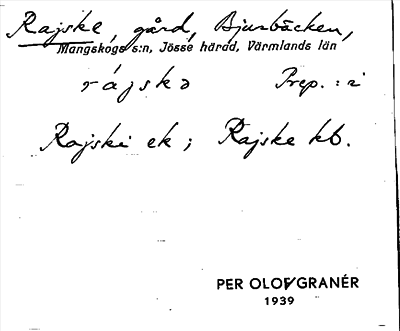 Rajske, gård, Bjurbäcken,
Mangskogs s:n, Jösse härad, Värmlands län
rájskə Prep. : i
Rajski ek ; Rajske kb.
PER OLOV GRANÉR
1939